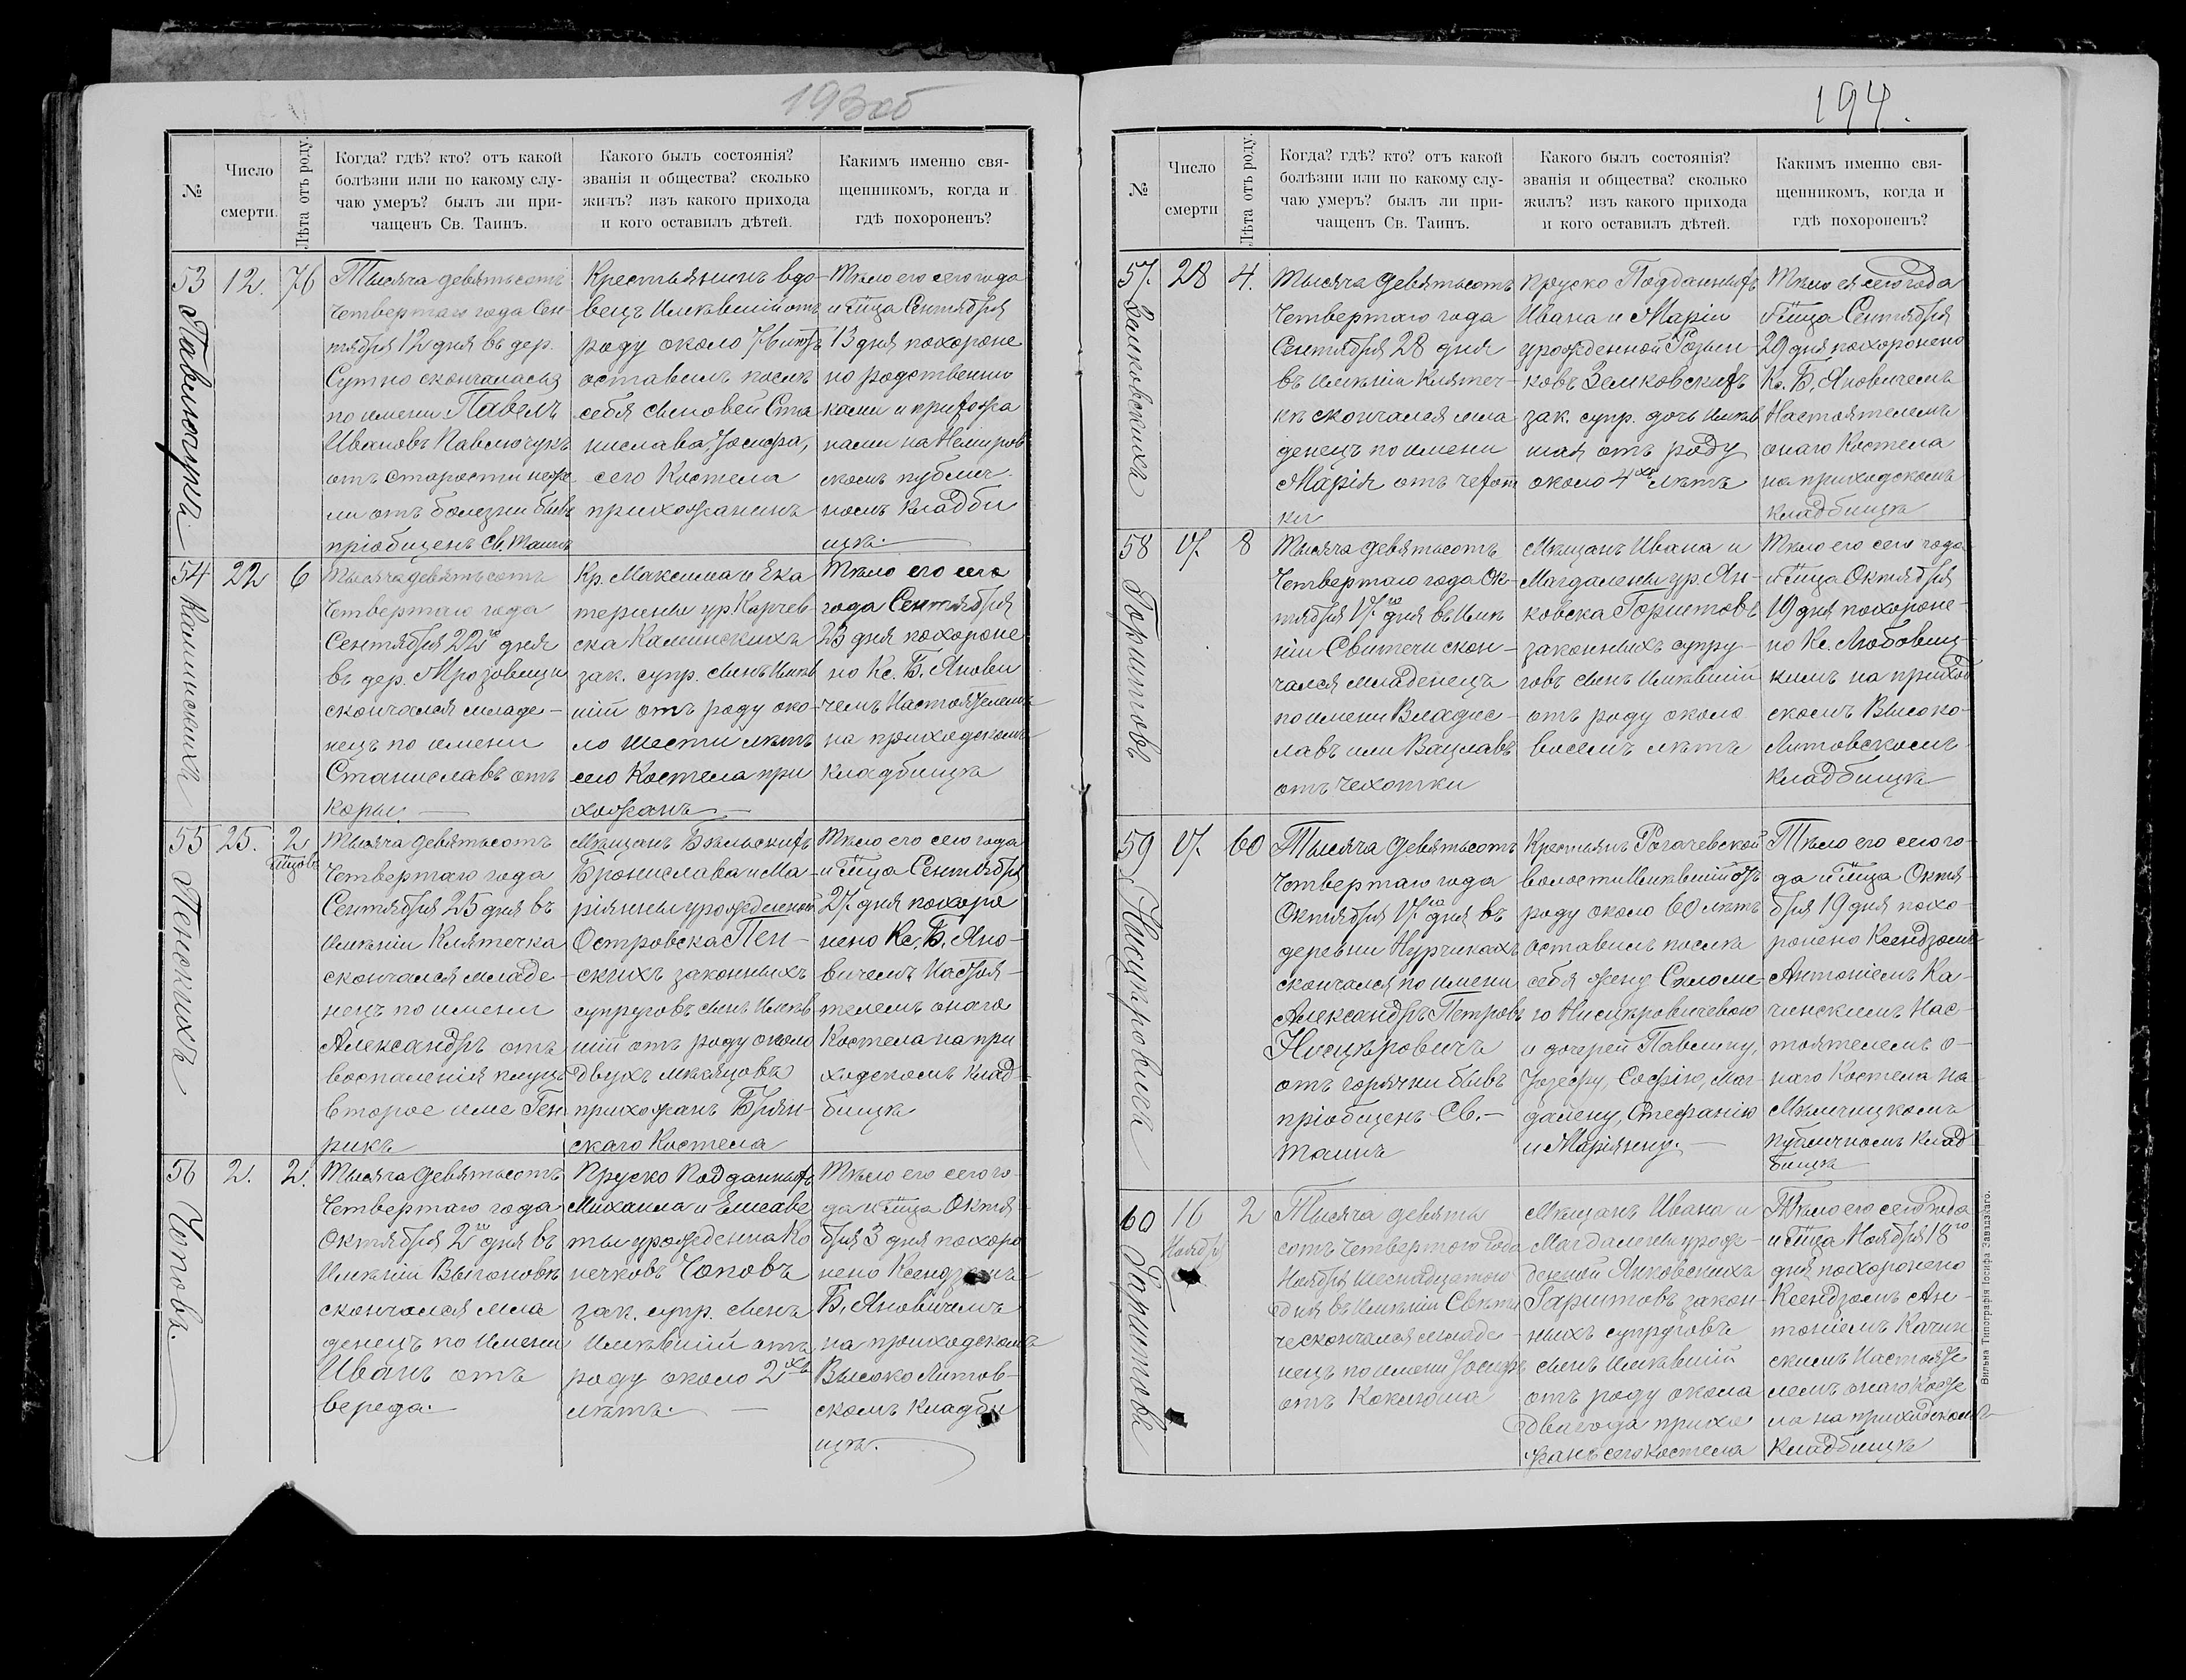 193об
№
Число
смерти.
Лѣта отъ роду.
Когда? гдѣ? кто? отъ какой
болѣзни или по какому слу-
чаю умеръ? былъ ли при-
чащенъ Св. Таинъ.
Какого былъ состоянія?
званія и общества? сколько
жилъ? изъ какого прихода
и кого оставилъ дѣтей.
Какимъ именно свя-
щенникомъ, когда и
гдѣ похороненъ?
53
Павлючукъ
12.
76
Тысяча девятьсотъ
четвертаго года Сен
тября 12 дня въ дер.
Сутно скончалась
по имени Павелъ
Ивановъ Павлючукъ
отъ старости неже
ли отъ болезни бывъ
пріобщенъ Св. Таинъ
Крестьянинъ вдо-
вецъ имѣвшій отъ
роду около 76 лѣтъ
оставилъ послѣ
себя сыновей Ста
нислава, Іосифа,
сего Костела
прихожанинъ
Тѣло его сего года
и м-ца Сентября
13 дня похороне
но родственни
ками и прихожа
нами на Немиров
скомъ публич-
номъ кладби
щѣ.
54
Каминскихъ
22
6
Тысяча девятьсотъ
Четвертаго года
Сентября 22го дня
въ дер. Мрозовищи
скончался младе-
нецъ по имени
Станиславъ отъ
коры.
Кр. Максима и Ека
терины ур Корчев
ска Каминскихъ
зак. супр. сынъ имѣв
шій отъ роду око-
ло шести лѣтъ
сего Костела при
хожанъ
Тѣло его сего
года Сентября
23 дня похороне
но Кс. Б. Янови
чемъ Настоятелемъ
на приходскомъ
кладбищѣ
55
Пенскихъ
25.
2
м-цовъ
Тысяча девятьсотъ
Четвертаго года
Сентября 25 дня въ
имѣніи Клятечка
скончался младе
нецъ по имени
Александръ отъ
воспаленія плуцъ
второе име Ген
рикъ
Мѣщанъ Бѣльскихъ
Бронислава и Ма-
ріянны урожденной
Островска Пен-
скихъ законныхъ
супруговъ сынъ имѣв
шій отъ роду около
двухъ мѣсяцовъ
прихожанъ Брян-
скаго Костела
Тѣло его сего года
и м-ца Сентября
27 дня похоро
нено Кс. Б. Яно-
вичемъ Настоя-
телемъ онаго
Костела на при
ходскомъ клад-
бищѣ
56
Чоповъ.
2.
2.
Тысяча девятьсотъ
Четвертаго года
Октября 2го дня въ
имѣніи Выгоновѣ
скончался мла
денецъ по имени
Иванъ отъ
вереда.
Пруско Подданныхъ
Михаила и Елисаве
ты урожденна Ко
нечковъ Чоповъ
зак. супр. сынъ
имѣвшій отъ
роду около 2хъ
лѣтъ.
Тѣло его сего го-
да и м-ца Октя
бря 3 дня похоро
нено Ксендзомъ
Б. Яновичемъ
на приходскомъ
Высоко Литов-
скомъ кладби
щѣ.
194.
№
Число
смерти
Лѣта отъ роду.
Когда? гдѣ? кто? отъ какой
болѣзни или по какому слу-
чаю умеръ? былъ ли при-
чащенъ Св. Таинъ.
Какого былъ состоянія?
званія и общества? сколько
жилъ? изъ какого прихода
и кого оставилъ дѣтей.
Какимъ именно свя-
щенникомъ, когда и
гдѣ похороненъ?
57.
28
4.
Тысяча девятьсотъ
Четвертаго года
Сентября 28 дня
въ имѣніи Клятеч-
кѣ скончался мла
денецъ по имени
Марія отъ чехот
ки
Пруско Подданныхъ
Ивана и Маріи
урожденной Розын-
ковъ Земковскихъ
зак. супр. дочь имѣв
шая отъ роду
около 4хъ лѣтъ
Тѣло ея сего года
и м-ца Сентября
29 дня похоронено
Кс. Б. Яновичемъ
Настоятелемъ
онаго Костела
на приходскомъ
кладбищѣ
58
Горштовъ
17.
8
Тысяча девятьсотъ
Четвертаго года Ок-
тября 17го дня въ имѣ
ніи Свитечи скон-
чался младенецъ
по имени Владис-
лавъ или Вацлавъ
отъ чехотки
Мѣщанъ Ивана и
Магдалены ур. Ян-
ковска Горштовъ
законныхъ супру-
говъ сынъ имѣвшій
отъ роду около
восемъ лѣтъ
Тѣло его сего года
и м-ца Октября
19 дня похороне-
но Кс. Любовиц-
кимъ на приход
скомъ Высоко-
Литовскомъ
кладбищѣ
59
17.
60
Тысяча девятьсотъ
Четвертаго года
Октября 17го дня въ
деревни Нурчикахъ
скончался по имени
Александръ Петровъ
Нисцѣровичъ
отъ горячки бывъ
пріобщенъ Св.-
Таинъ
Крестьянъ Рогачевской
волости имѣвшій отъ
роду около 60 лѣтъ
оставилъ послѣ
себя жену Саломе
ю Нисцѣровичевою
и дочерей Павлину,
Іозефу, Софію, Маг-
далену, Стефанію
и Маріянну.
Тѣло его сего го-
да и м-ца Октя
бря 19 дня похо-
ронено Ксендзомъ
Антоніемъ Ка-
чинскимъ Нас-
тоятелемъ о-
наго Костела на
Мѣльчицкомъ
публичномъ клад
бищѣ
60
Горштовъ
16
Ноября
2
Тысяча девять
сотъ четвертого года
Ноября шеснадцатого
дня въ имѣніи Свѣти
че скончался младе
нецъ по имени Іосифъ
отъ Коклюша
Мѣщанъ Ивана и
Магдалены урож-
денной Янковскихъ
Гарштовъ закон-
ныхъ супруговъ
сынъ имѣвшій
отъ роду окола
два года прихо
жанъ сего костела
Тѣло его сего года
и м-ца Ноября 18го
дня похоронено
Ксендзомъ Ан-
тоніемъ Качин
скимъ Настояте
лемъ онаго Косте
ла на приходскомъ
кладбищѣ
Вильна Типографія Іосифа Завадзкаго.